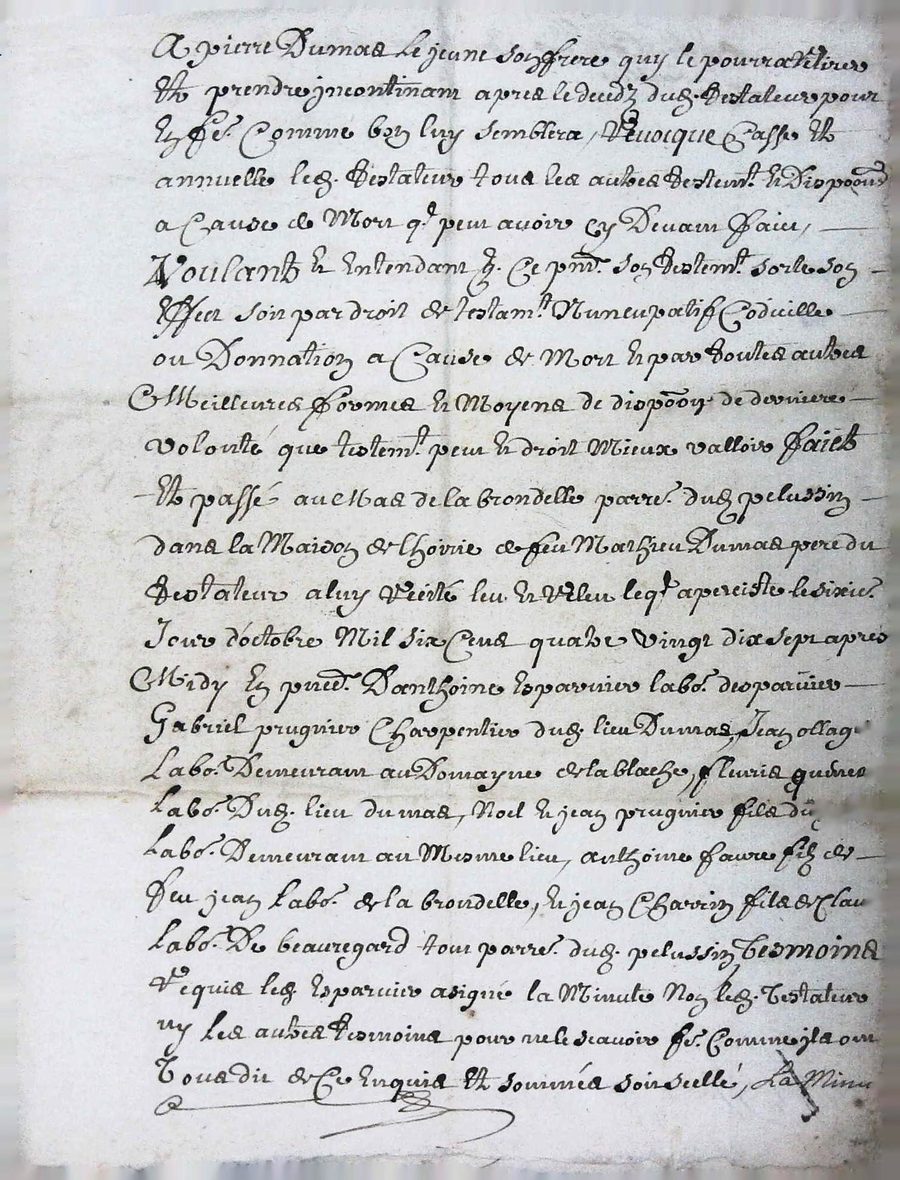 A pierre Dumas le jeune son frere quy le pourra retirer
Et prendre jncontinant apres le decedz dud. testateur pour
En fe. Comme bon luy semblera, Revocque Casse Et
annuelle led. testateur tous les autres testemt. et Dispoons
a Cause de Mort ql peut avoir cy Devant faict,
Voulant et Entendant q. Ce pnt. son testemt. sorte son
Effect soit par droit de testamt. Nuncupatif Codicille
ou Donnation a Cause de Mort et par toutes autres
Meilleures formes et Moyens de dispoon de derniere
volonté que testemt. peut et droit Mieux valloir faict
Et passé au Mas de la brondelle parre. dud pelussin
dans la Maison de lhoirie de feu Mathieu Dumas pere du
testateur a luy Recité leu et Releu leql. a perciste le sixie.
Jour d'octobre Mil six Cens quatre vingt dix sept apres
Midy En pnce. D'anthoine Esparvier labo. desparvier
Gabriel prugnier Charpentier dud. lieu Dumas, Jean ollag
Labo. Demeurant au Domayne de la blache, fleuris
Labo. Dud. lieu dumas, Noel et jean prugnier fils du
Labo. Demeurant au Mesme lieu, anthoine faure filz de
feu jean Labo. de la brondelle, et jean Charrin fils de Clau
Labo. De beauregard tout parre. dud. pelussin Tesmoins
Requis led Esparvier a signé la Minute Non led. Testateur
ny les autres tesmoins pour ne le scavoir fe. Comme jls ont
Tous dit de Ce Enquis Et sommés soit scellé, La Minu